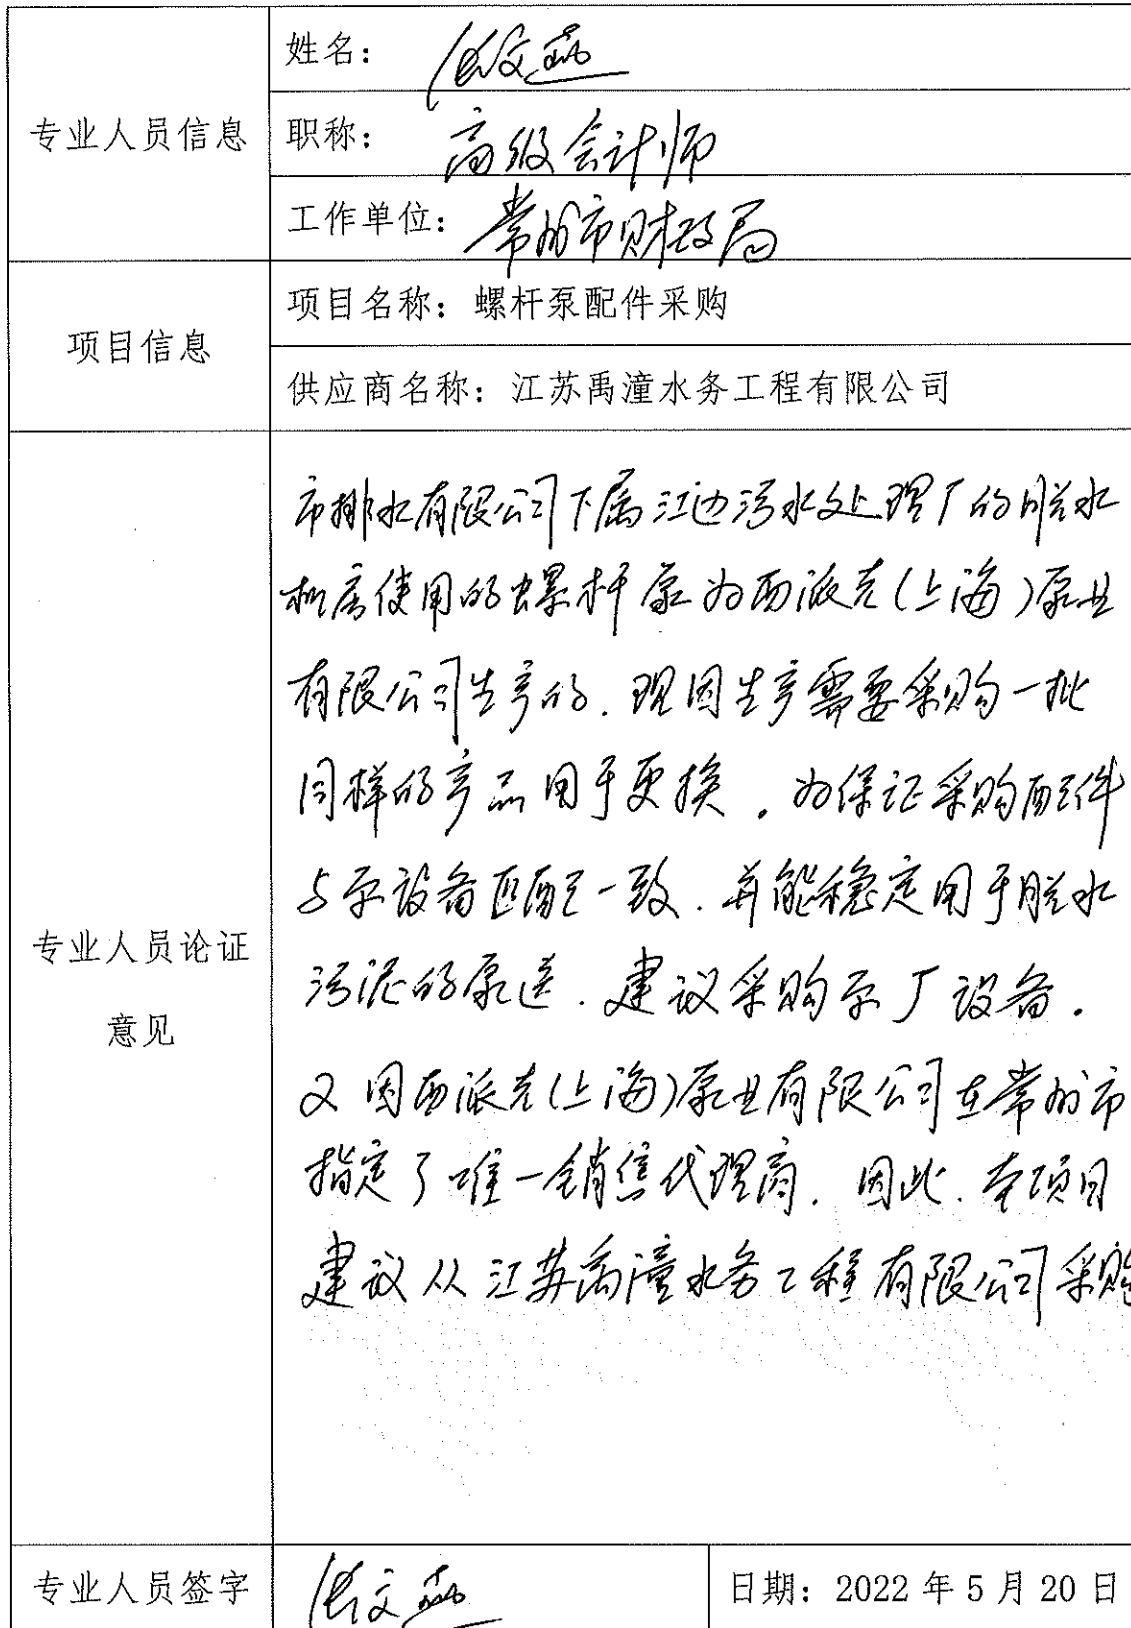 专业人员信息
姓名：
职称：高级会计师
工作单位：常州市财政局
项目信息
项目名称：螺杆泵配件采购
供应商名称：江苏禹潼水务工程有限公司
专业人员论证
意见
市排水有限公司下属江边污水处理厂的脱水
机房使用的螺杆泵为西派克(上海)泵业
有限公司生产的.现因生产需要采购一批
同样的产品用于更换。为保证采购配件
与原设备匹配一致.并能稳定用于脱水
污泥的泵送.建议采购原厂设备.
又因西派克(上海)泵业有限公司在常州市
指定了唯一销售代理商.因此.本项目
建议从江苏禹潼水务工程有限公司采购
专业人员签字
日期：2022年5月20日